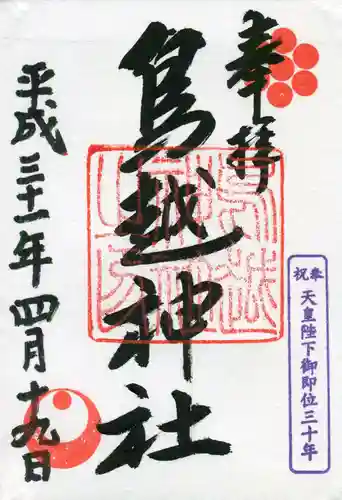 奉拝
鳥越神社
平成三十一年四月十九日
奉祝 天皇陛下御即位三十年